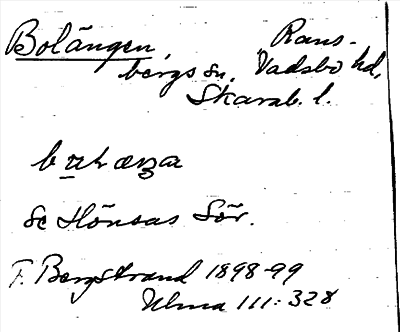 Bolängen, Rans-
bergs sn, Vadsbo hd,
Skarab. l.
Se Hönsas Sör.
F. Bergstrand 1898-99
Ulma 111:328